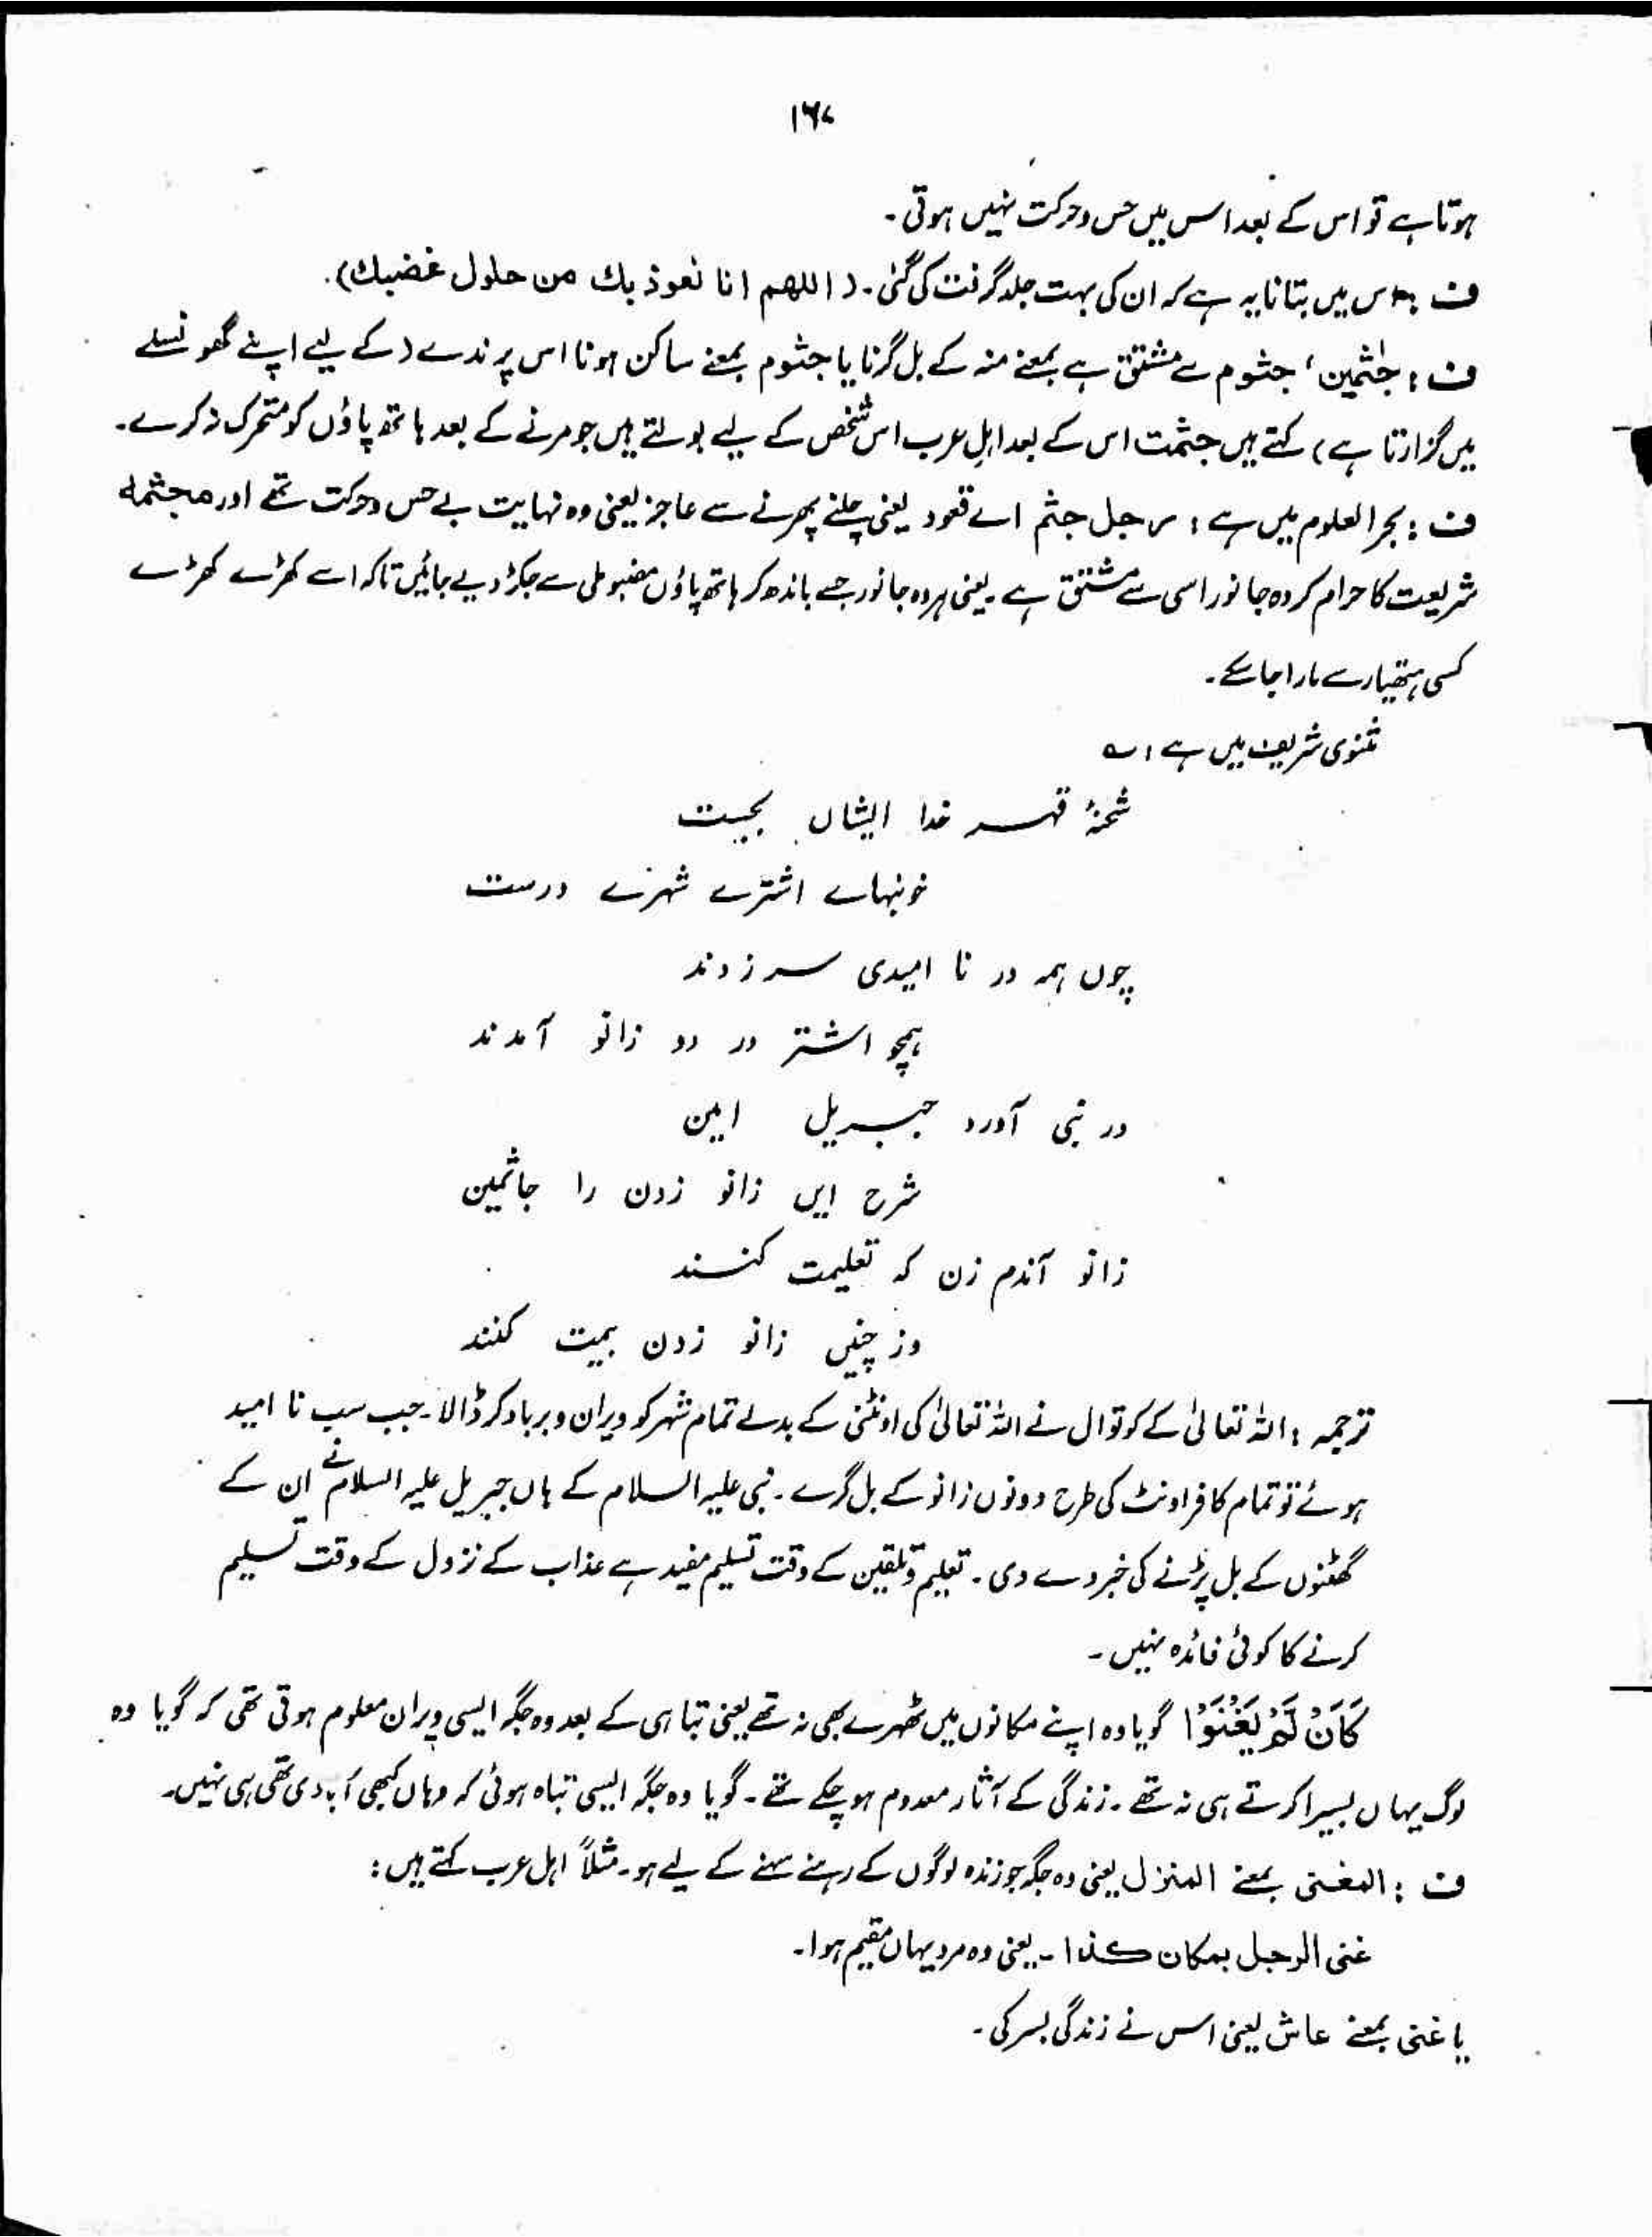 ۱۶۷
ہوتا ہے تو اس کے بعد اس میں حس و حرکت نہیں ہوتی۔
ف : اس میں بتانا یہ ہے کہ ان کی بہت جلد گرفت کی گئی۔ (اللھم انا نعوذ بك من حلول غضبك)۔
ف : جٰثمین، جثوم سے مشتق ہے بمعنے منہ کے بل گرنا یا جثوم بمعنے ساکن ہونا اس پرندے (کے لیے اپنے گھونسلے
میں گزارتا ہے) کہتے ہیں جثمت اس کے بعد اہلِ عرب اس شخص کے لیے بولتے ہیں جو مرنے کے بعد ہاتھ پاؤں کو متحرک نہ کرے۔
ف : بحر العلوم میں ہے : رجل جثم اے قعود یعنی چلنے پھرنے سے عاجز یعنی وہ نہایت بے حس و حرکت تھے اور مجثمہ
شریعت کا حرام کردہ جانور اسی سے مشتق ہے۔ یعنی ہر وہ جانور جسے باندھ کر ہاتھ پاؤں مضبوطی سے جکڑ دیے جائیں تاکہ اسے کھڑے کھڑے
کسی ہتھیار سے مارا جا سکے۔
مثنوی شریف میں ہے : ؎
شحنۂ قہر خدا ایشاں بجست
خونبہاے اشترے شہرے درست
چوں ہمہ در نا امیدی سر زدند
ہمچو اشتر در دو زانو آمدند
در نبی آورد جبریل امین
شرح ایں زانو زدن را جاثمین
زانو آندم زن کہ تعلیمت کنند
وز چنیں زانو زدن بیمت کنند
ترجمہ : اللہ تعالیٰ کے کوتوال نے اللہ تعالیٰ کی اونٹنی کے بدلے تمام شہر کو ویران و برباد کر ڈالا۔ جب سب نا امید
ہوئے تو تمام کافر اونٹ کی طرح دونوں زانو کے بل گرے۔ نبی علیہ السلام کے ہاں جبریل علیہ السلام نے ان کے
گھٹنوں کے بل پڑنے کی خبر دے دی۔ تعلیم و تلقین کے وقت تسلیم مفید ہے عذاب کے نزول کے وقت تسلیم
کرنے کا کوئی فائدہ نہیں۔
كَاَنْ لَّمْ يَغْنَوْا گویا وہ اپنے مکانوں میں ٹھہرے بھی نہ تھے یعنی تباہی کے بعد وہ جگہ ایسی ویران معلوم ہوتی تھی کہ گویا وہ
لوگ یہاں بسیرا کرتے ہی نہ تھے۔ زندگی کے آثار معدوم ہو چکے تھے۔ گویا وہ جگہ ایسی تباہ ہوئی کہ وہاں کبھی آبادی تھی ہی نہیں۔
ف : المغنی بمعنے المنزل یعنی وہ جگہ جو زندہ لوگوں کے رہنے سہنے کے لیے ہو۔ مثلاً اہل عرب کہتے ہیں :
غنی الرجل بمکان کذا۔ یعنی وہ مرد یہاں مقیم ہوا۔
یا غنی بمعنے عاش یعنی اس نے زندگی بسر کی۔